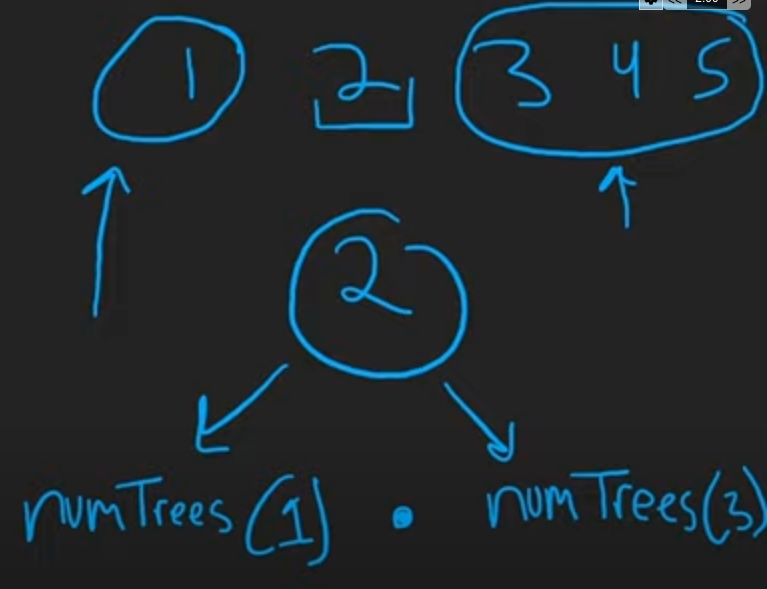 1 2 3 4 5
2
numTrees(1) • numTrees(3)